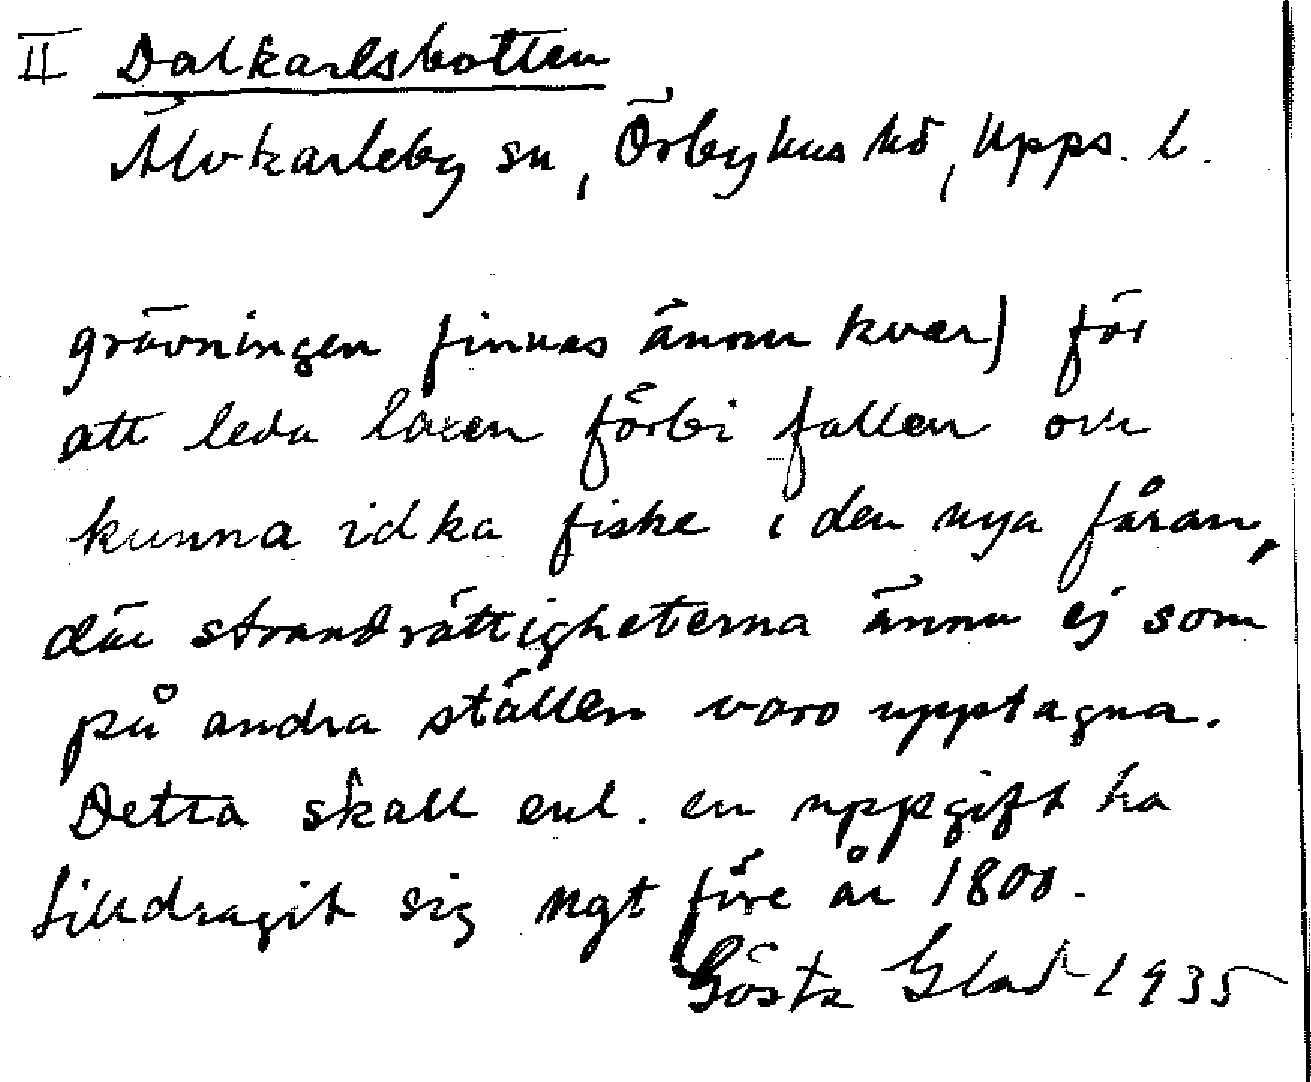 II Dalkarlsbotten
Älvkarleby sn, Örbyhus hd, Upps. l.
grävningen finnes ännu kvar) för
att leda laxen förbi fallen och
kunna idka fiske i den nya fåran,
där strandrättigheterna ännu ej som
på andra ställen voro upptagna.
Detta skall enl. en uppgift ha
tilldragit sig ngt före år 1800.
Gösta Glad 1935